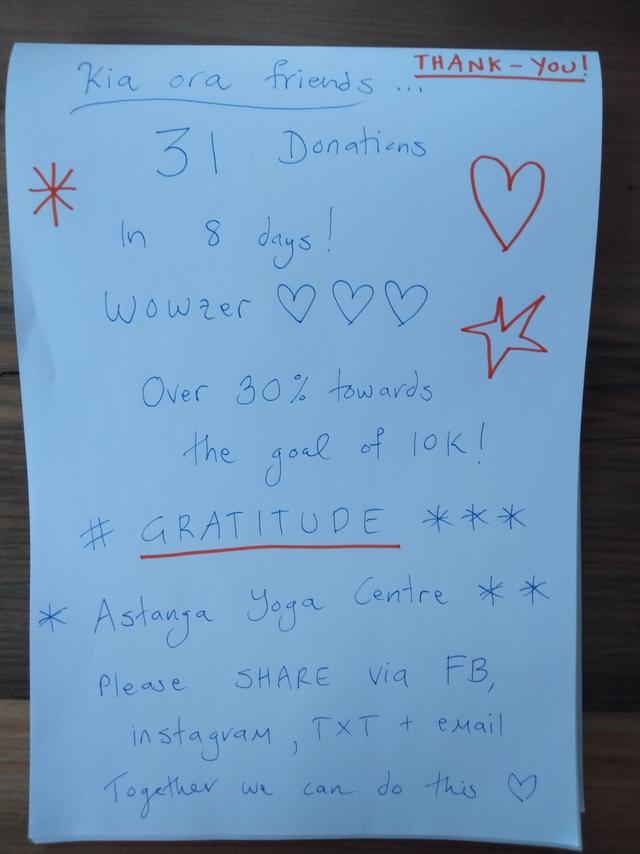 Kia ora friends ...
THANK-YOU!
31 Donations
In 8 days!
Wowzer ♡ ♡ ♡
Over 30% towards
the goal of 10K!
# GRATITUDE ***
* Astanga Yoga Centre **
Please SHARE via FB,
instagram, TXT + email
Together we can do this ♡